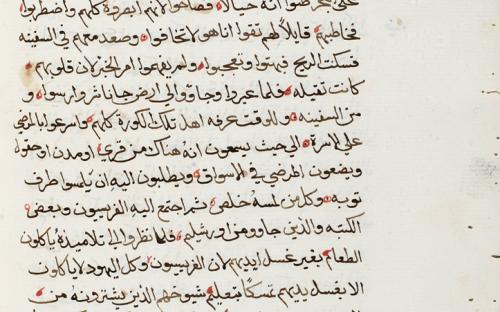 على بحر ظنوا انه خيالا فصاحوا لانهم ابصروه كلهم واضطربوا
فخاطبهم قايلا لهم تقوا انا هو لا تخافوا وصعد معهم في السفينه
فسكت الريح فبهتوا وتعجبوا ولم يفهموا امر الخبز لان قلوبهم
كانت ثقيله فلما عبروا وجاوا الى ارض جناشر وارسوا و
من السفينه وللوقت عرفه اهل تلك الكورة كلهم واسرعوا بالمرضي
علي الاسرة الي حيث يسمعون انه هناك من قري او مدن او حقول
ويضعون المرضي في الاسواق ويطلبون اليه ان يلمسوا طرف
ثوبه وكل من لمسه خلص ثم اجتمع اليه الفريسيون وبعض
الكتبه والذين جاوو من اورشليم فلما نظروا الي تلاميذة ياكلون
الطعام بغير غسل ايديهم لان الفريسيون وكل اليهود لا ياكلون
الا بغسل يديهم تمسكا بتعليم شيوخهم الذين يشترونه من